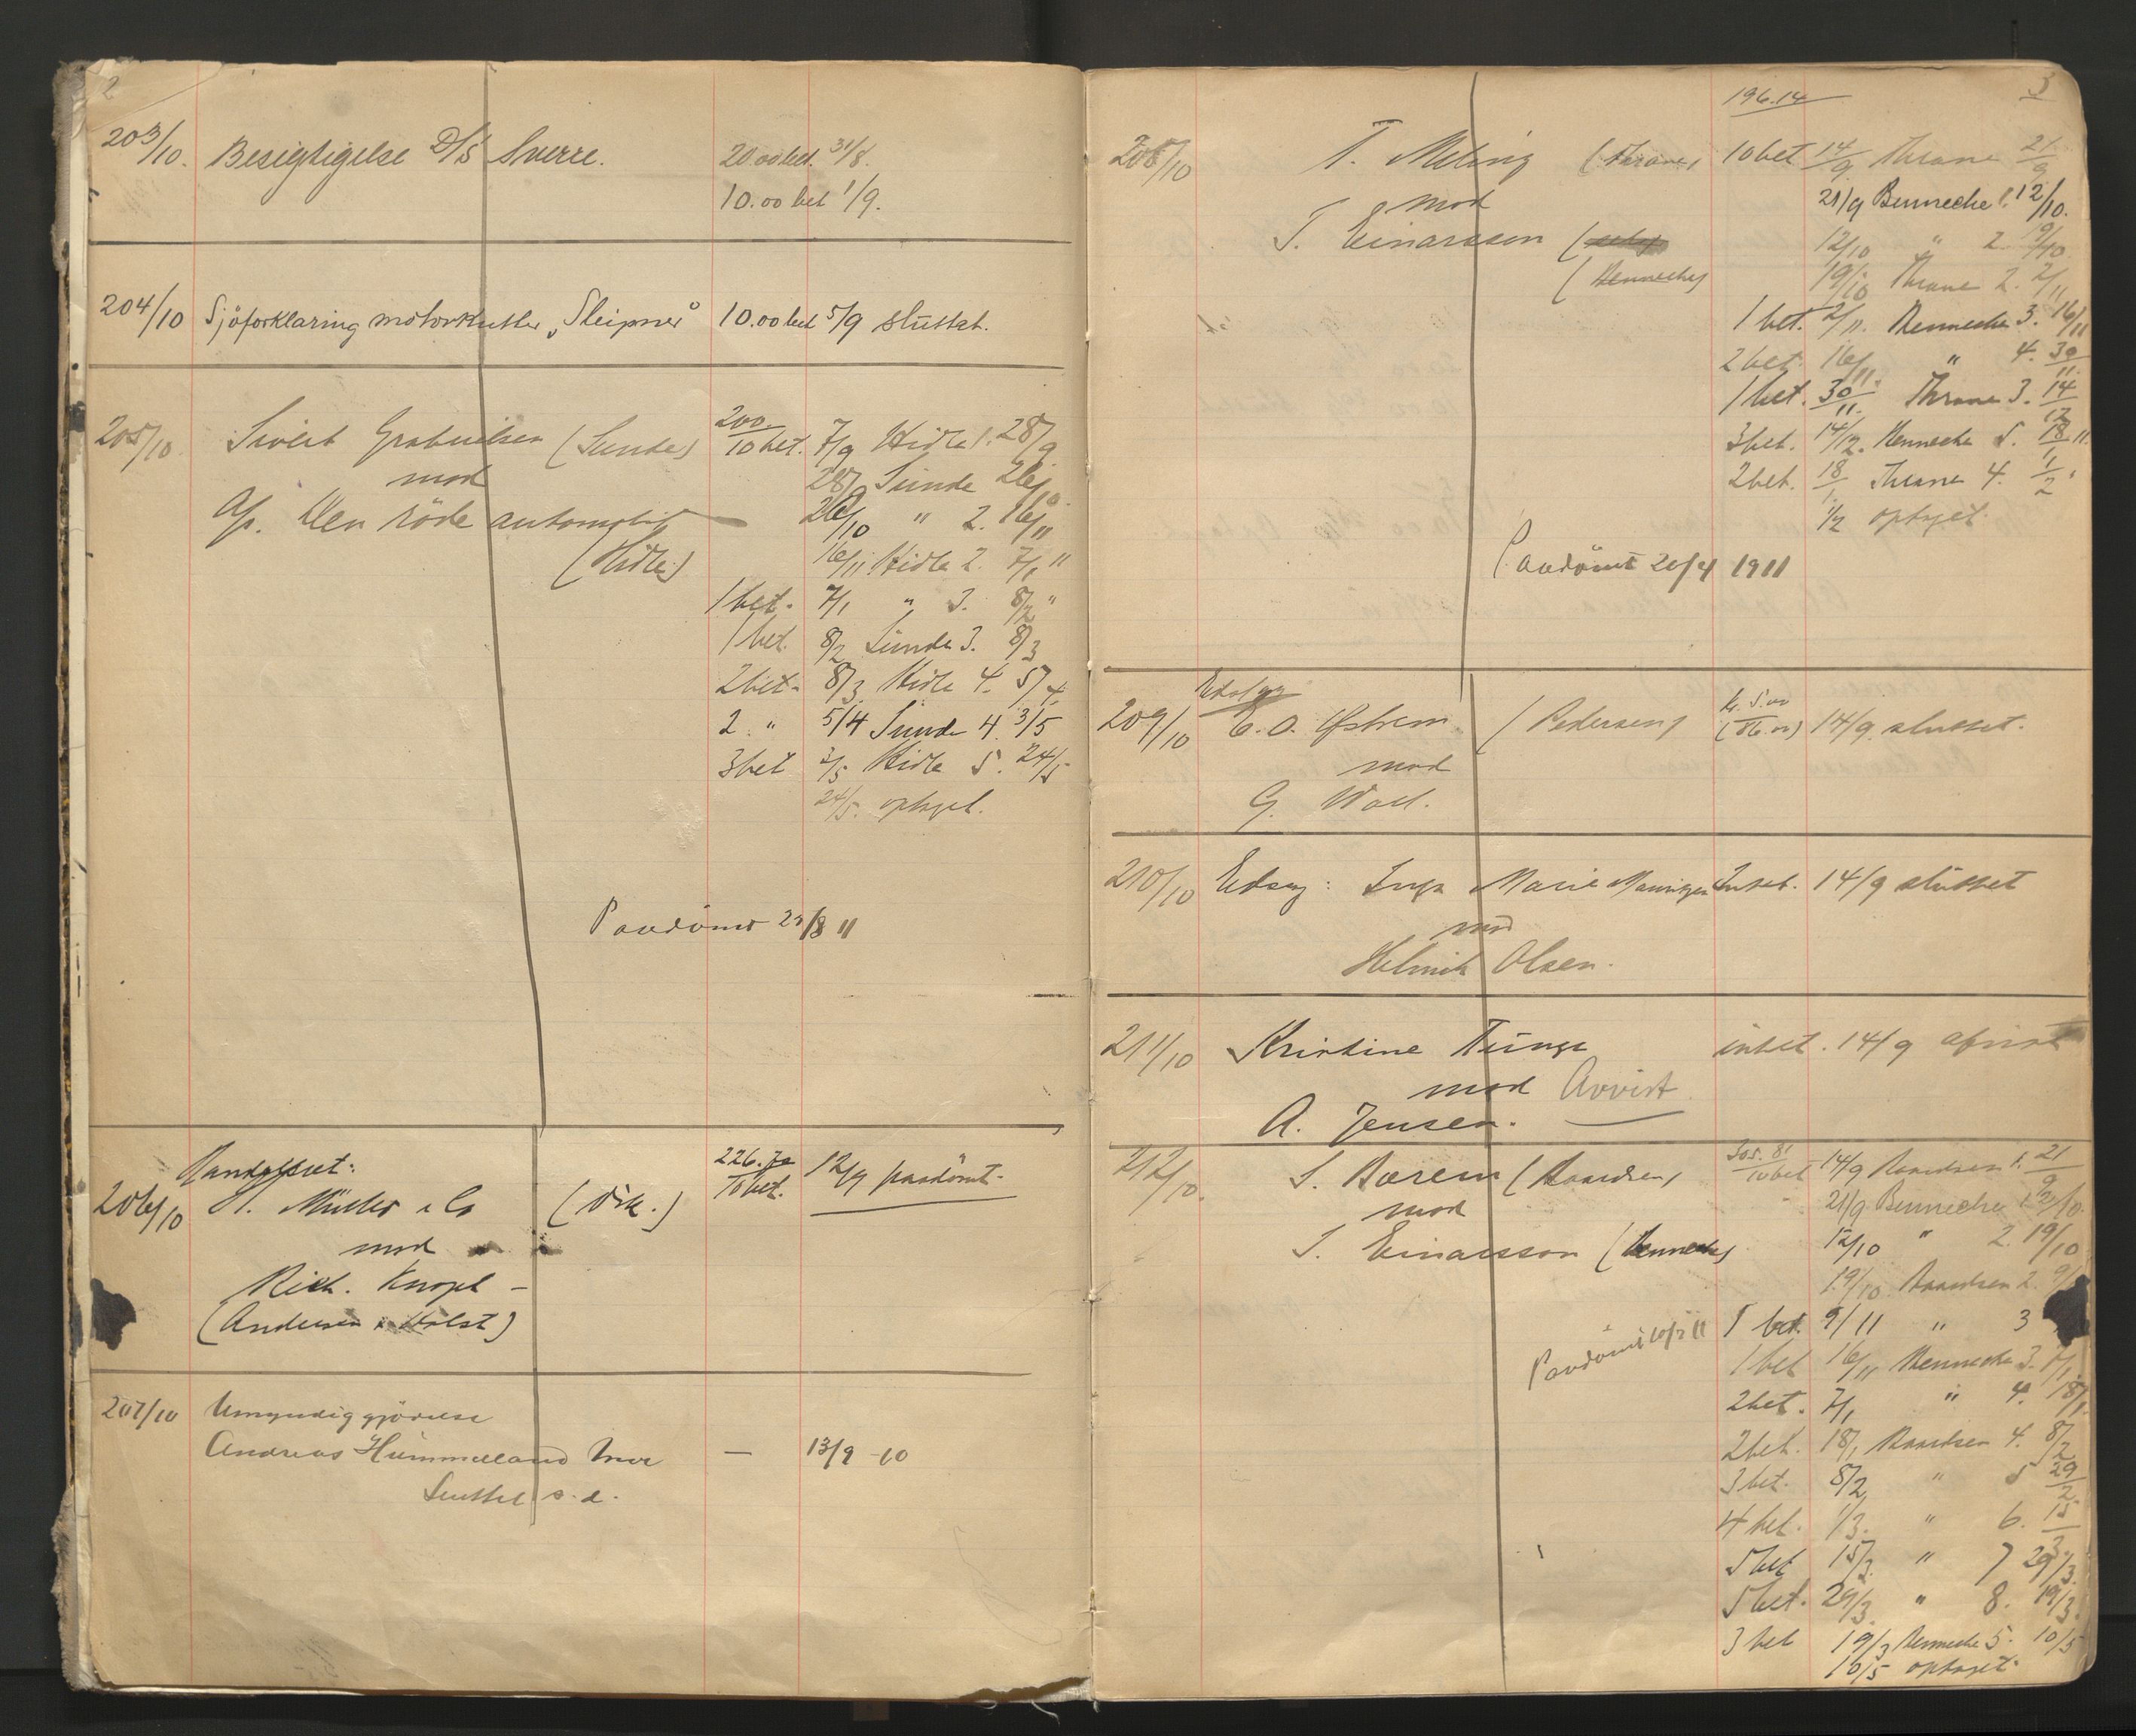 2
203/10. Besigtigelse D/S Sverre. 20.00 bet. 31/8.
10.00 bet 1/9.
204/10 Sjöforklaring motorkutter „Sleipner" 10.00 bet 5/9 sluttet.
205/10 Sivert Gabrielsen (Sunde) 200. 10 bet. 7/9 Hidle 1. 28/9
mod 28/9 Sunde 26/10
A/s. Den röde automobil 26/10 " 2. 16/11
(Hidle) 16/11 Hidle 2. 7/1 11
1 bet. 7/1 " 3. 8/2 "
1 bet. 8/2 Sunde 3. 8/3
2 bet. 8/3 Hidle 4. 5/4
2 " 5/4 Sunde 4. 3/5
3 bet 3/5 Hidle 5. 24/5
24/5. optaget.
Paadömt 8 11
206/10 Müller & Co (Vik.) 226.70 10 bet. 12/9 paadömt.
mod
Rich. Knoph -
(Andersen & Holst)
207/10 Umyndiggjörelse
Andreas Hummeland - 13/9 -10
Sluttet s.d.
3
196.14
208/10 T. Meling (Thrane) 10 bet 14/9 Thrane 21/9
mod 21/9 Benneche 1. 12/10.
T. Einarsson 12/10 " 2. 19/10
(Benneche) 19/10 Thrane 2. 2/11
1 bet. 2/11. Benneche 3. 16/11
2 bet. 16/11. " 4. 30/11.
1 bet. 30/11. Thrane 3. 14/12
3 bet. 14/12. Benneche 5. 18/1 11.
2 bet. 18/1. Thrane 4. 1/2.
1/2 optaget.
Paadömt 1911
209/10 E. O. (Pedersen) kr. 5.00 14/9 sluttet.
mod
G. Wall.
210/10 Edsag: Inga Marie 14/9 sluttet
mod
Helmik Olsen.
211/10 Kristine Tunge intet. 14/9 afvist
mod Avvist
A. Jensen.
212/10. S. Barem (Baardsen) 305.81 10 bet 14/9 Baardsen 1. 21/9
mod 21/9 Benneche 1. 12/10.
T. Einarsson (Benneche) 12/10 " 2. 19/10
19/10 Baardsen 2. 9/11
1 bet. 9/11 " 3
Paadömt 11
1 bet 16/11 Benneche 3. 7/1
2 bet. 7/1 " 4. 18/1.
2 bet. 18/1 Baardsen 4. 8/2
3 bet. 8/2 " 5
4 bet. 1/3. " 6. 15/3.
5 bet 15/3. " 7 29/3.
5 bet. 29/3. " 8. 19/3.
3 bet 19/3 Benneche 5. 10/5
10/5 optaget.